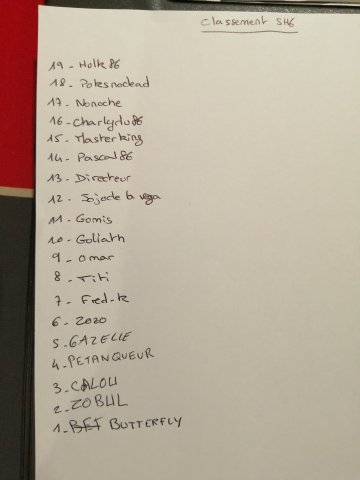 Classement SH6
19 - Holk86
18 - Potesnodead
17 - Nonoche
16 - Charlydu86
15 - Masterking
14 - Pascal86
13 - Directeur
12 - Jojode la vega
11 - Gomis
10 - Goliath
9 - Omar
8 - Titi
7 - Fred-k
6 - Zozo
5 - GAZELLE
4 - PETANQUEUR
3 - CALOU
2 - ZOBUL
1 - BET BUTTERFLY